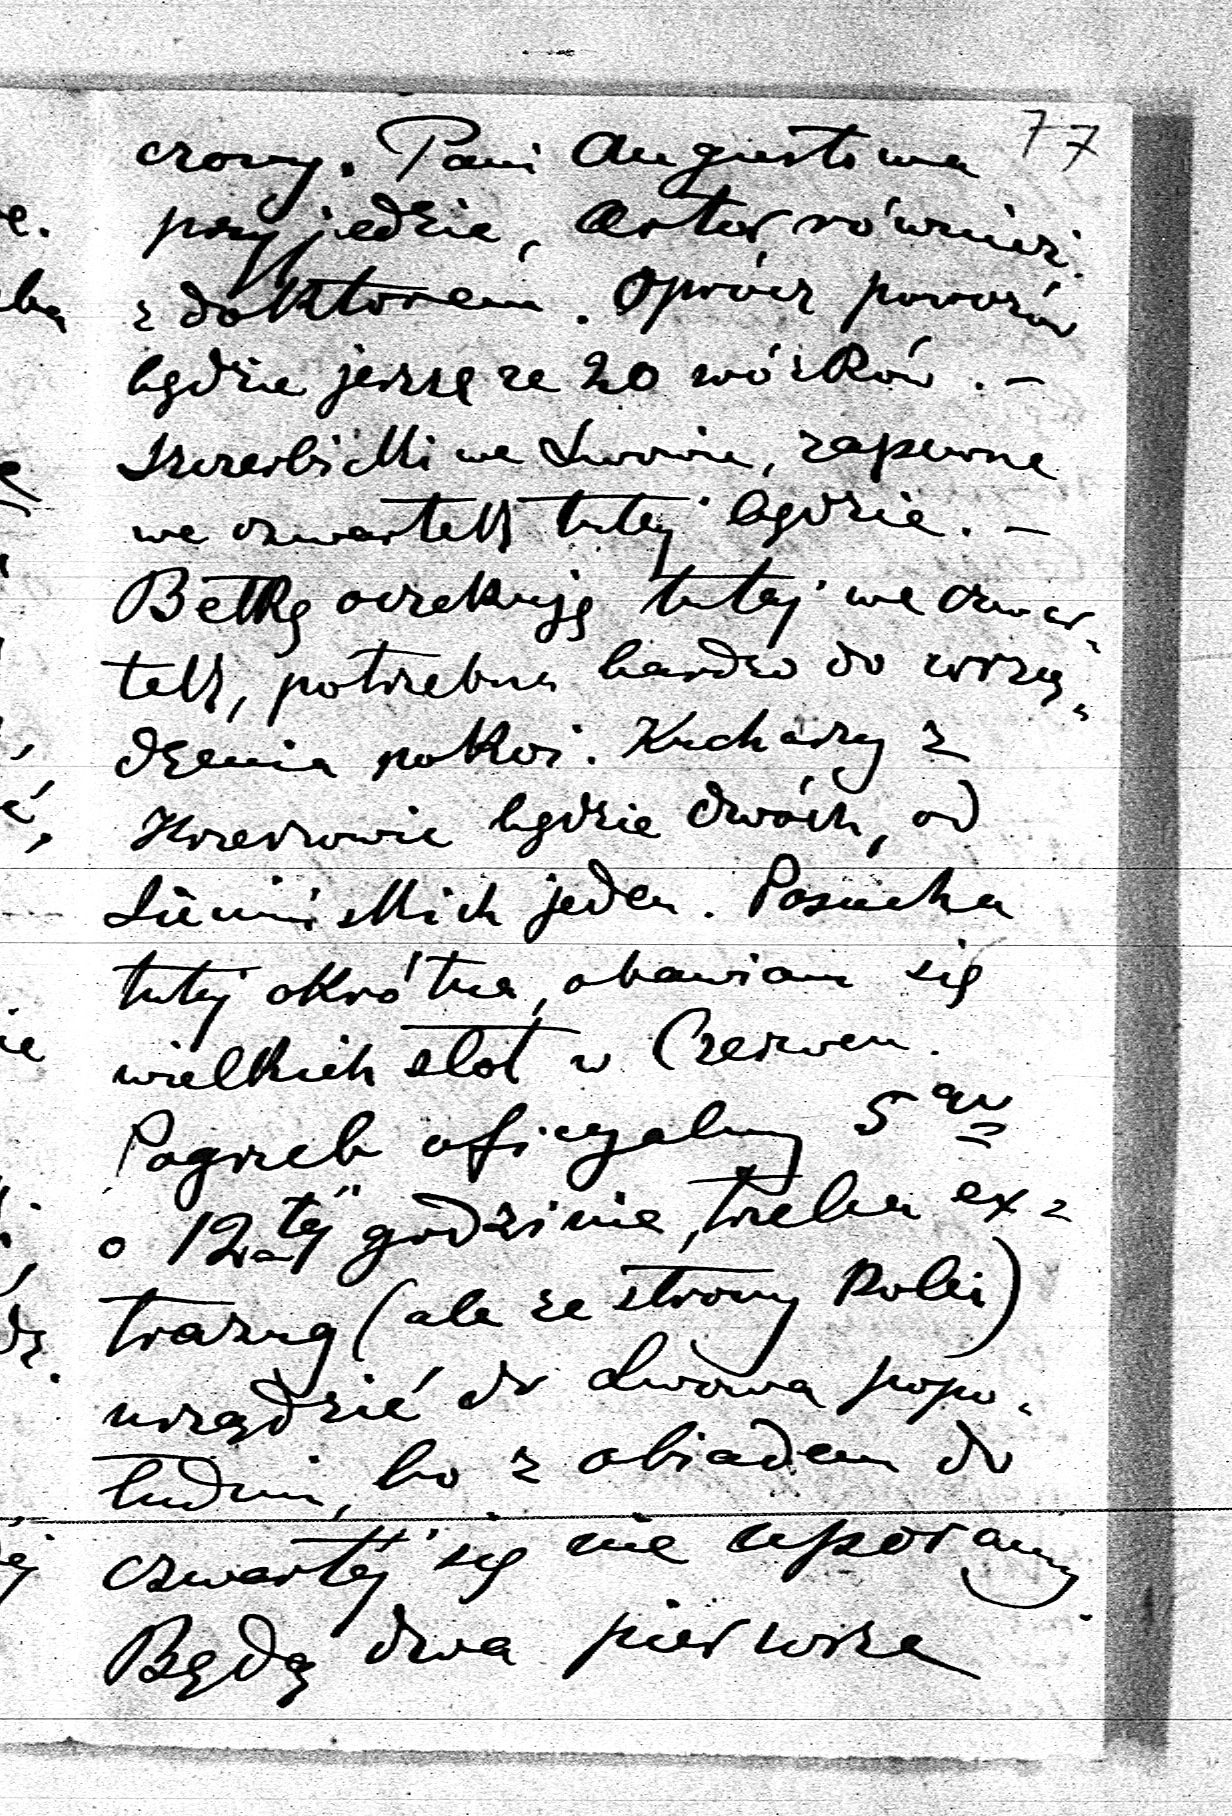 77
czony. Pani Augustowa
przyjedzie, Artur również.
z doktorem. Oprócz powozów
będzie jeszcze 20 wózków. –
Szczerbicki we Lwowie, zapewne
we czwartek tutej będzie. –
Betkę oczekuję tutej we czwar-
tek, potrzebna bardzo do urzą-
dzenia pokoi. Kucharzy z
Krzeszowic będzie dwóch, od
Siemińskich jeden. Posucha
tutej okrótna, obawiam się
wielkich słot w Czerwcu.
Pogrzeb oficyalny 5go
o 12tej godzinie, trzeba ex=
trazug (ale ze strony Kolei)
urządzić do Lwowa popo-
łudniu, bo z obiadem do
czwartej się nie uporamy.
Będą dwa pierwsze